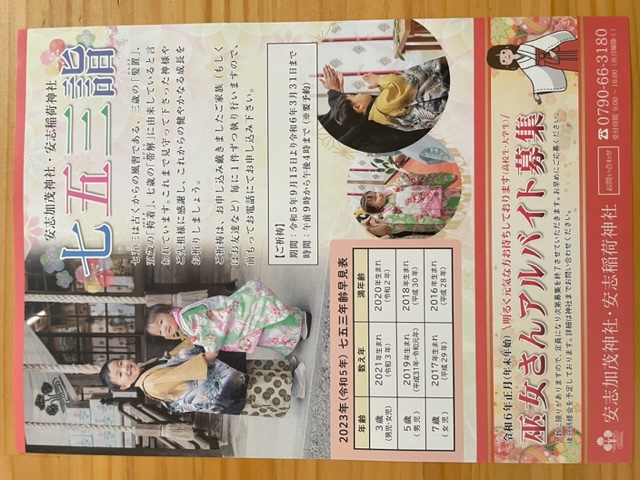 安志加茂神社・安志稲荷神社
七五三詣
七五三は古くからの風習である、三歳の「髪置」、
五歳の「袴着」、七歳の「帯解」に由来していると言
われています。これまで見守って下さった神様や
ご祖様に感謝し、これからの健やかなる成長を
お祈りしましょう。
ご祈祷は、お申し込み戴きましたご家族（もしく
はお友達など）毎に1件ずつ執り行いますので、
前もってお電話にてお申し込み下さい。
【ご祈祷】
期間：令和5年9月15日より令和6年3月31日まで
時間：午前9時から午後4時まで（※要予約）
2023年（令和5年）七五三年齢早見表
年齢 数え年 満年齢
3歳（男児・女児） 2021年生まれ（令和3年） 2020年生まれ（令和2年）
5歳（男児） 2019年生まれ（平成31年・令和元年） 2018年生まれ（平成30年）
7歳（女児） 2017年生まれ（平成29年） 2016年生まれ（平成28年）
令和6年正月（年末年始） 明るく元気な方お待ちしております（高校生・大学生）
巫女さんアルバイト募集
人数に限りがありますので、定員になり次第募集を終了させていただきます。お早めにご応募ください。
後日研修会を予定しております。詳細は神社までお問い合わせください。
安志加茂神社・安志稲荷神社
お問い合わせ
☎0790-66-3180
受付時間 9:00～16:00